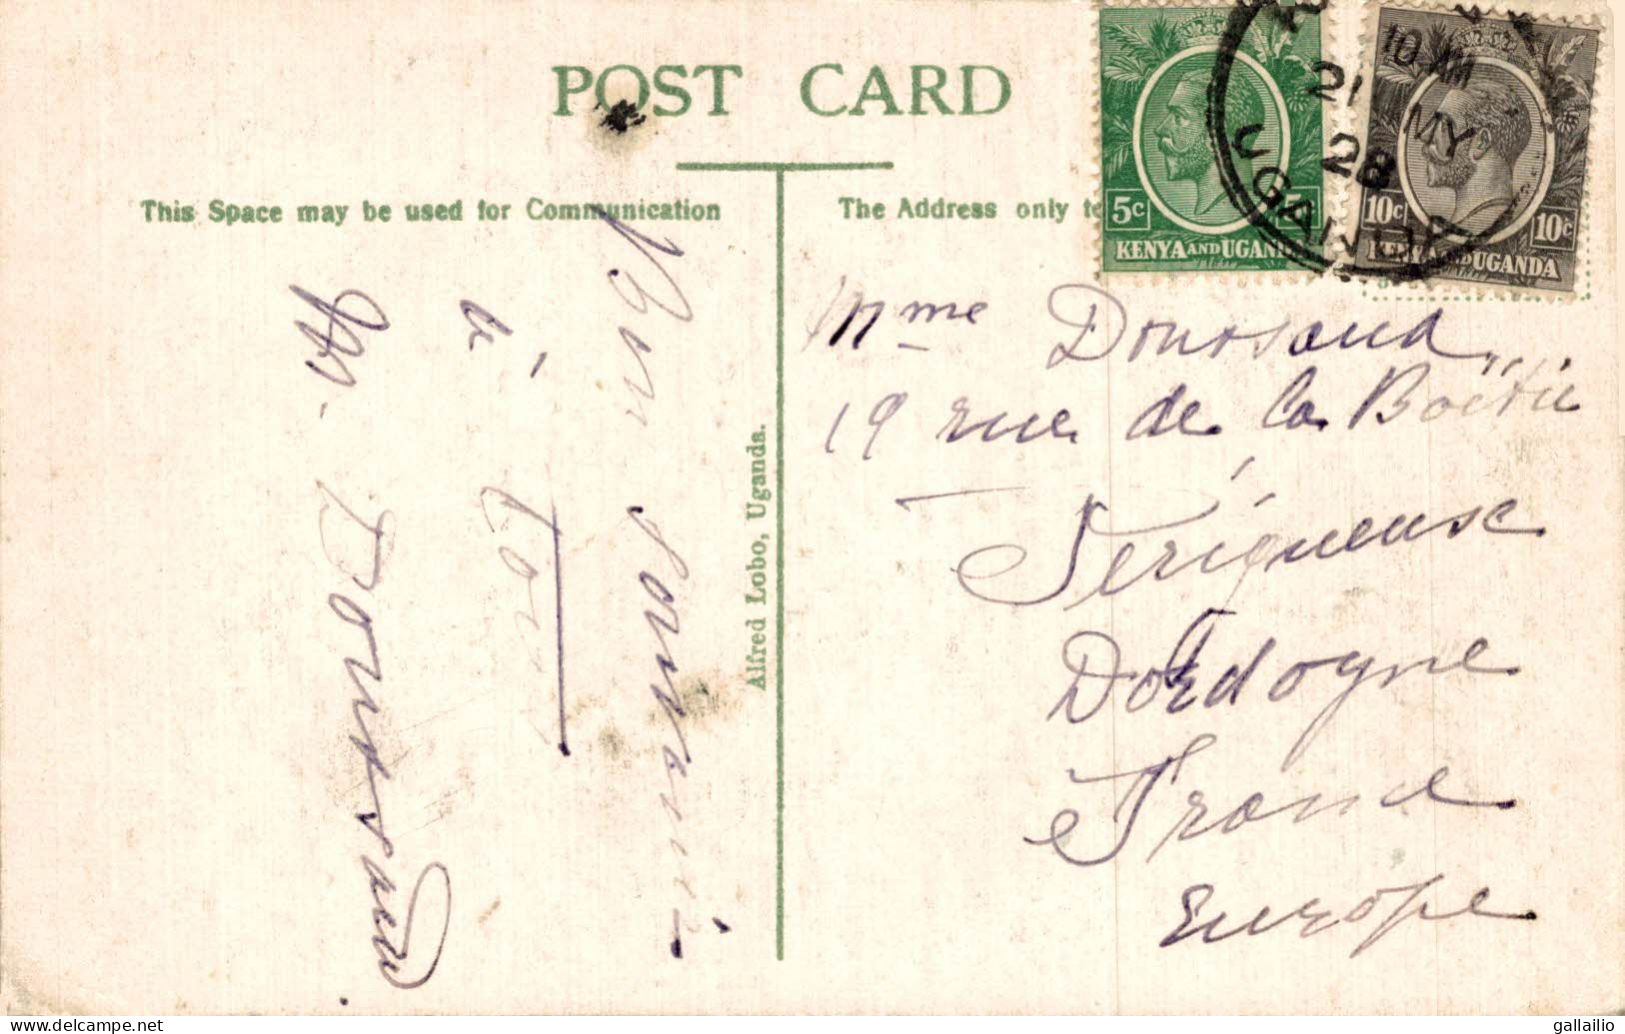 POST CARD
This Space may be used for Communication
The Address only to
5c
KENYA AND UGANDA
10c
10c
KENYA AND UGANDA
10 AM
21 MY
28
UGANDA
Bon souvenir
à tous
M. Doursaud
Alfred Lobo, Uganda.
Mme Doursaud
19 rue de la Boëtie
Périgueux
Dordogne
France
Europe
delcampe.net
gallailio